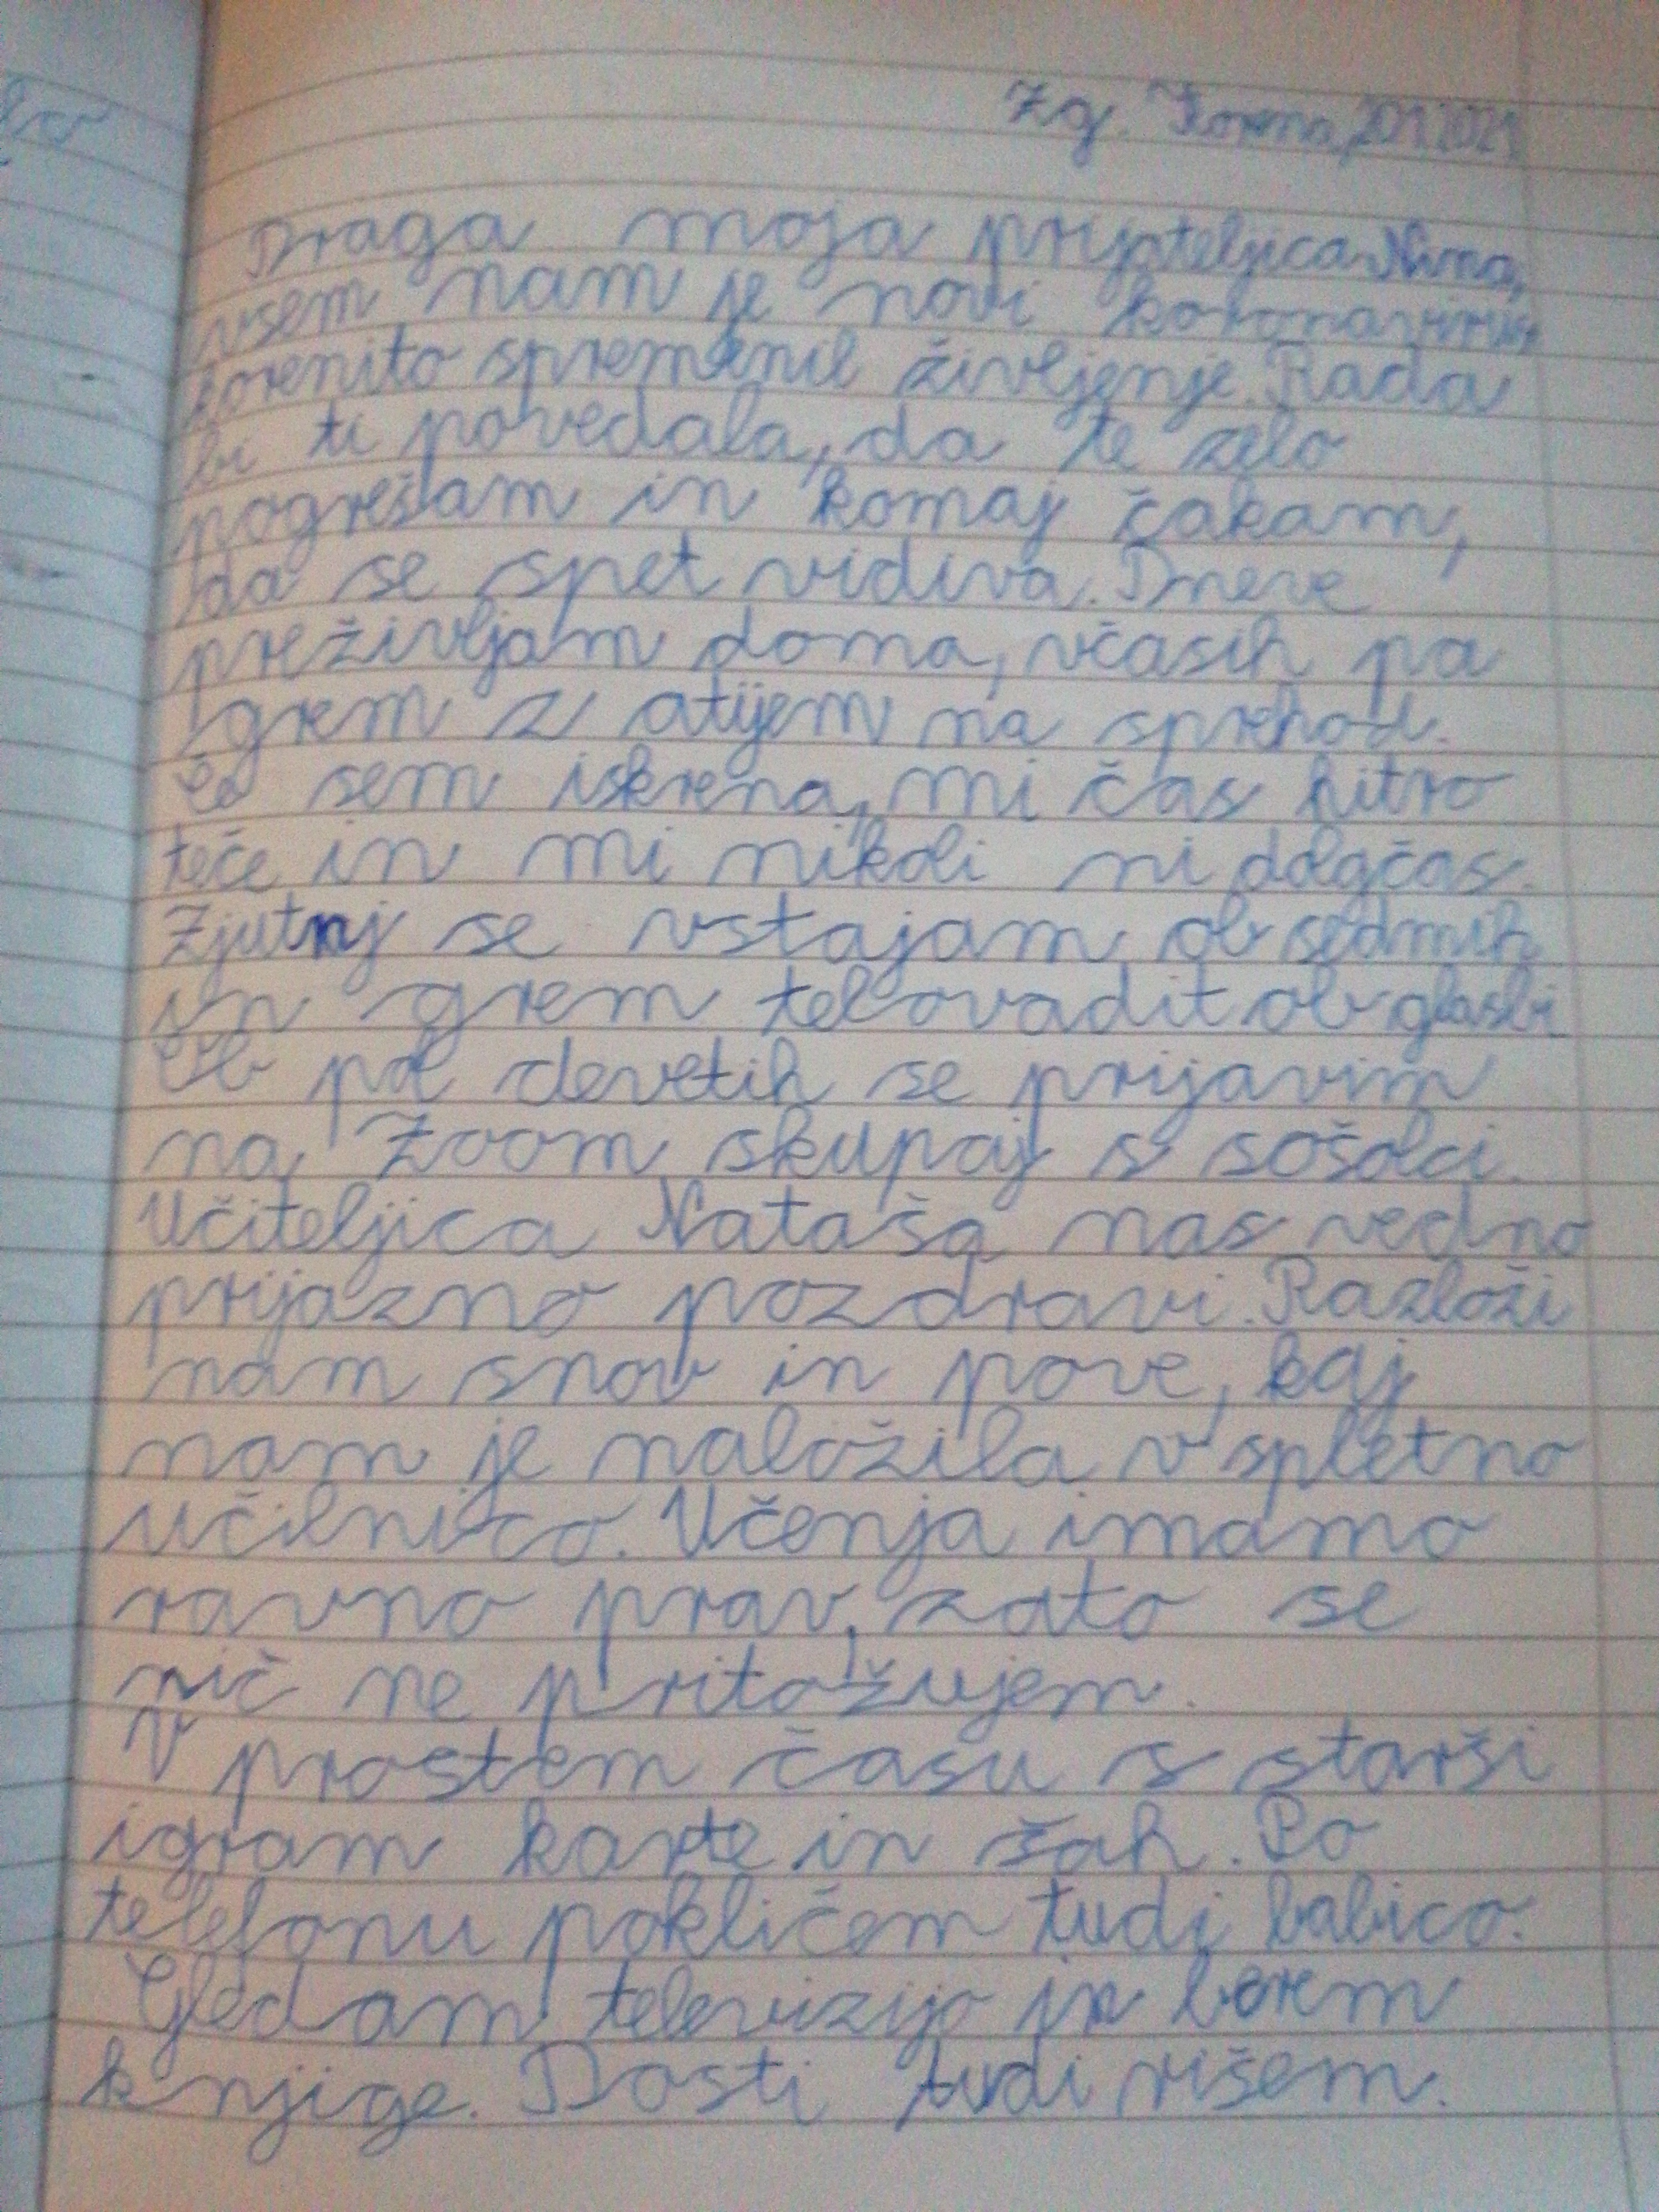 Zg. Korena, 20.1.2021
Draga moja prijateljica Nina,
vsem nam je novi koronavirus
korenito spremenil življenje. Rada
bi ti povedala, da te zelo
pogrešam in komaj čakam,
da se spet vidiva. Dneve
preživljam doma, včasih pa
grem z atijem na sprehod.
Če sem iskrena, mi čas hitro
teče in mi nikoli ni dolgčas.
Zjutrnj se vstajam ob sedmih
in grem telovadit ob glasbi.
Ob pol devetih se prijavim
na Zoom skupaj s sošolci.
Učiteljica Nataša nas vedno
prijazno pozdravi. Razloži
nam snov in pove, kaj
nam je naložila v spletno
učilnico. Učenja imamo
ravno prav, zato se
nič ne pritožujem.
V prostem času s starši
igram karte in šah. Po
telefonu pokličem tudi babico.
Gledam televizijo in berem
knjige. Dosti tudi rišem.